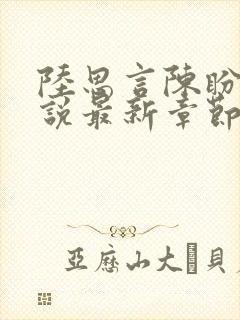 陸思言陳盼
說最新章節
亞歷山大貝